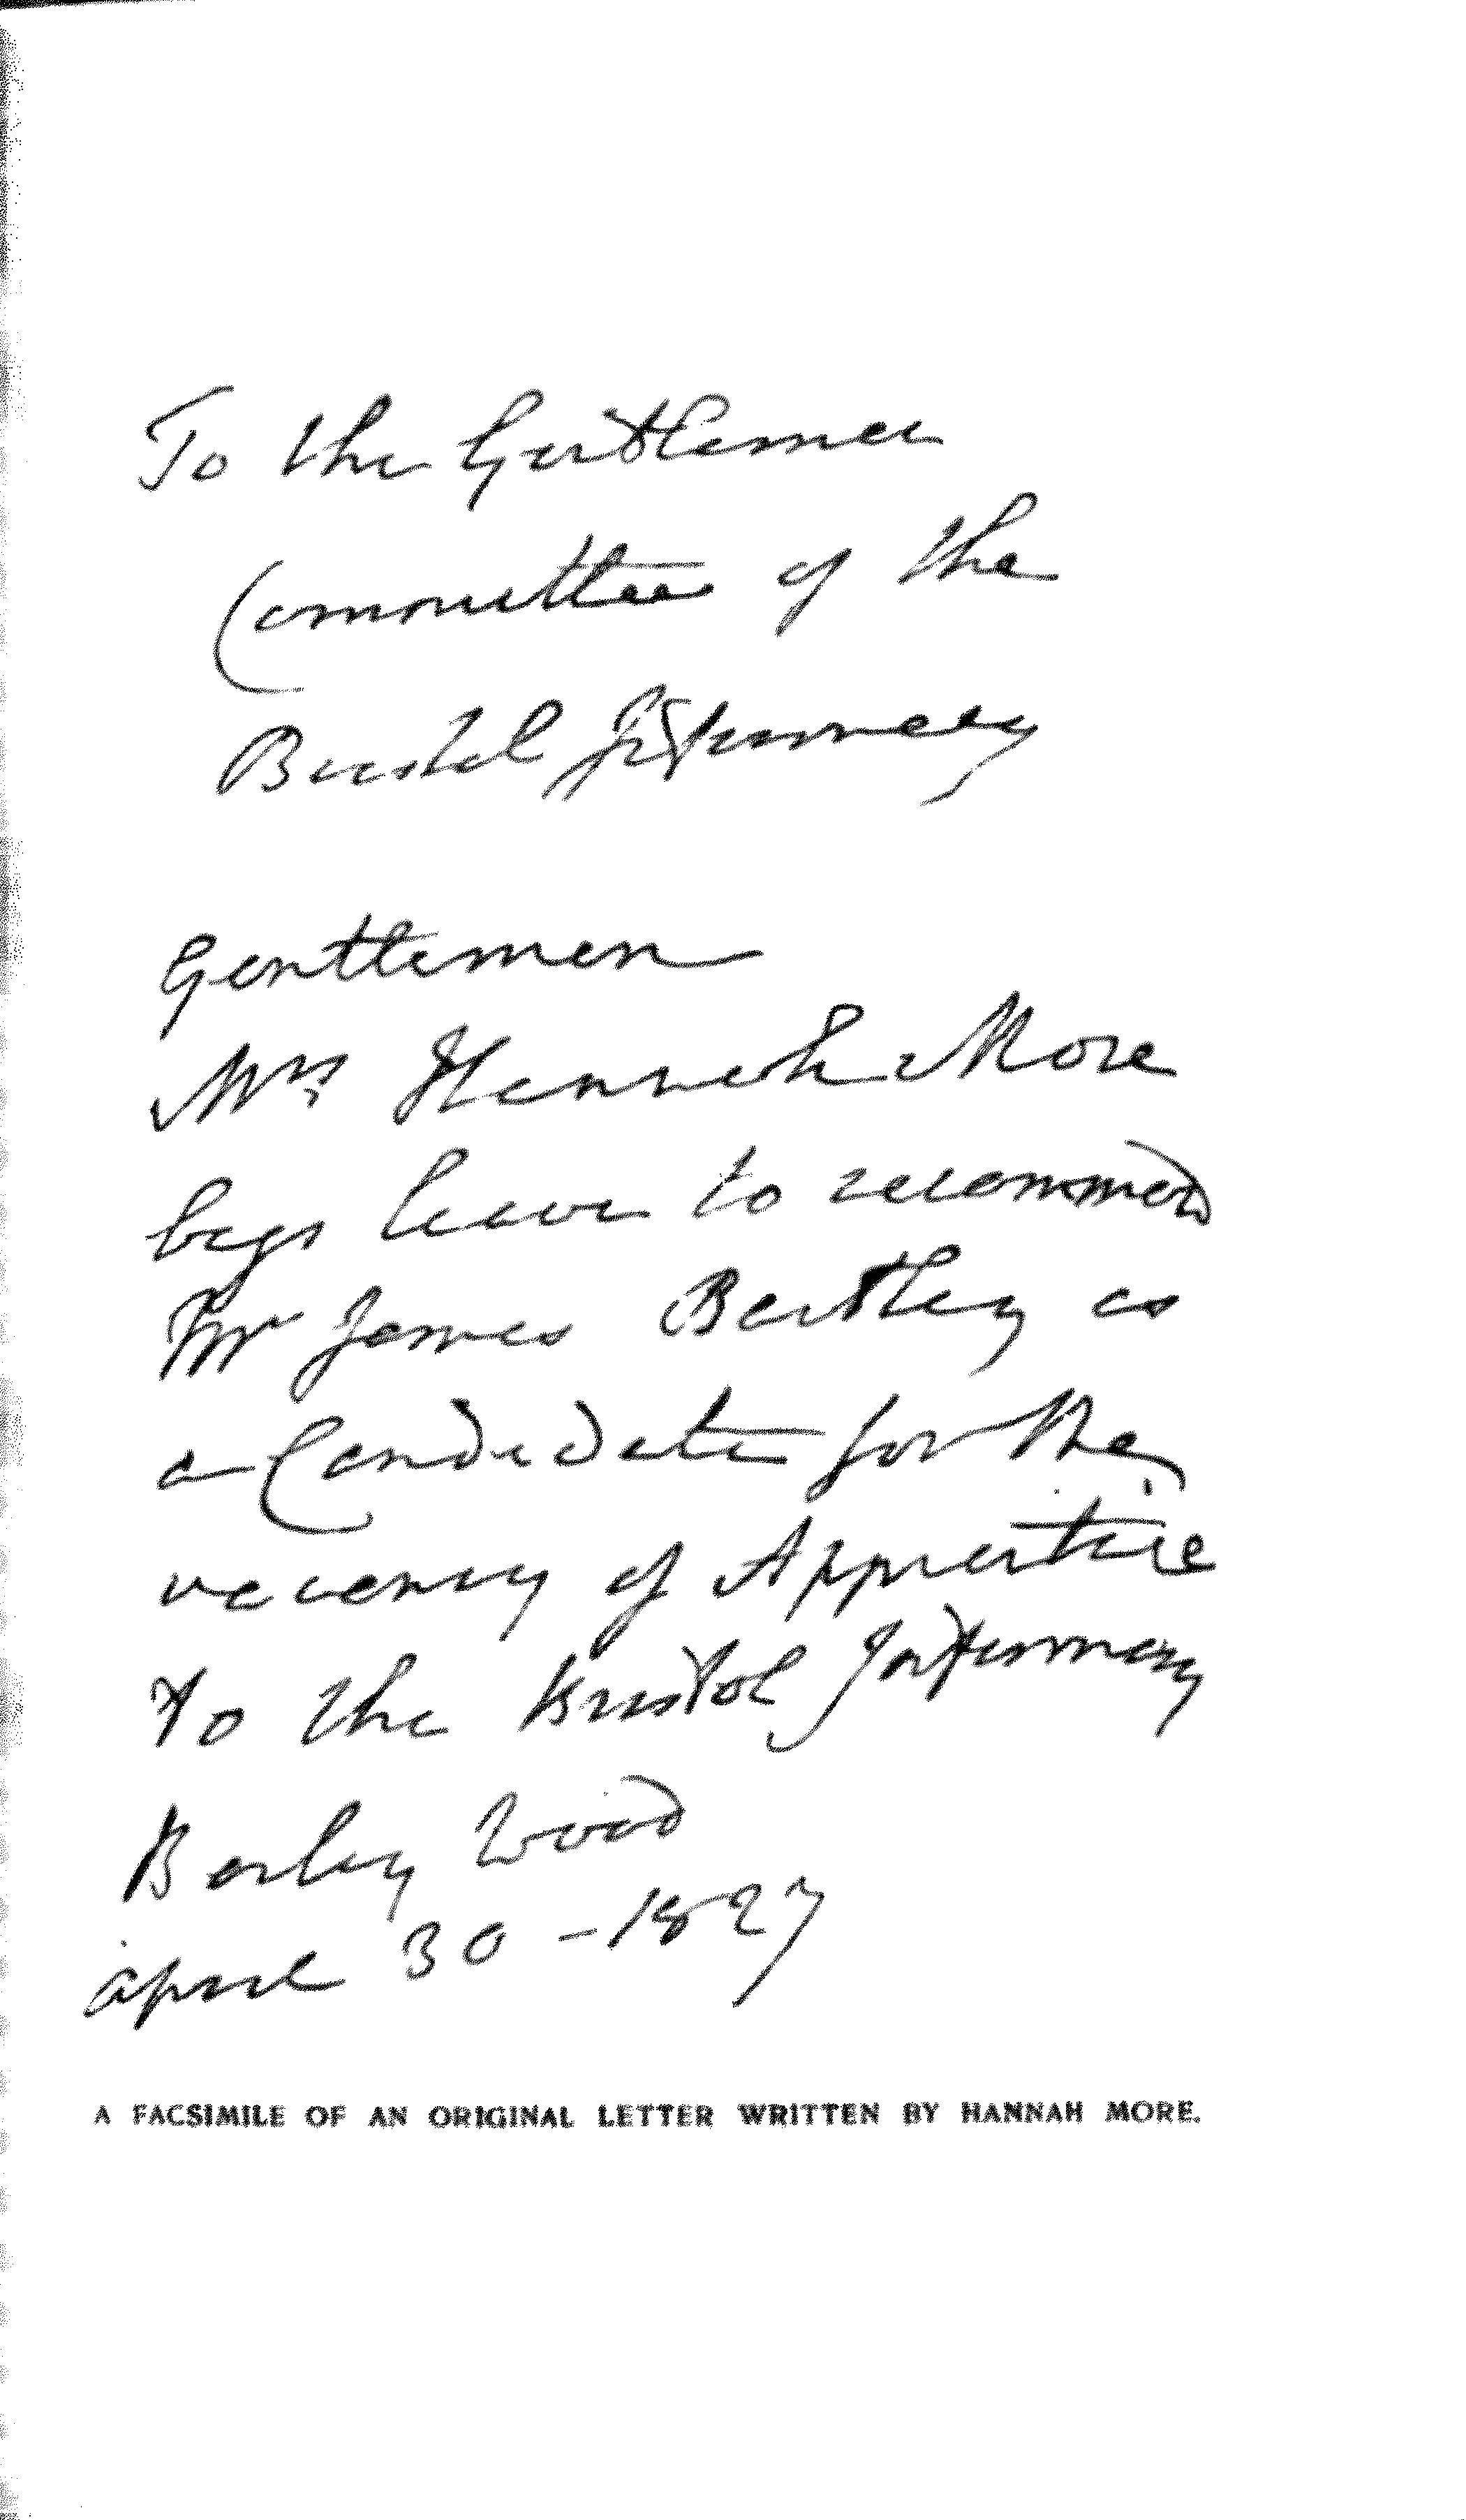 To the Gentlemen
Committee of the
Bristol Infirmary
Gentlemen
Mrs Hannah More
begs leave to recommend
Mr James Bartley as
a Candidate for the
vacancy of Apprentice
To the Bristol Infirmary
Barley Wood
April 30 - 1827
A FACSIMILE OF AN ORIGINAL LETTER WRITTEN BY HANNAH MORE.